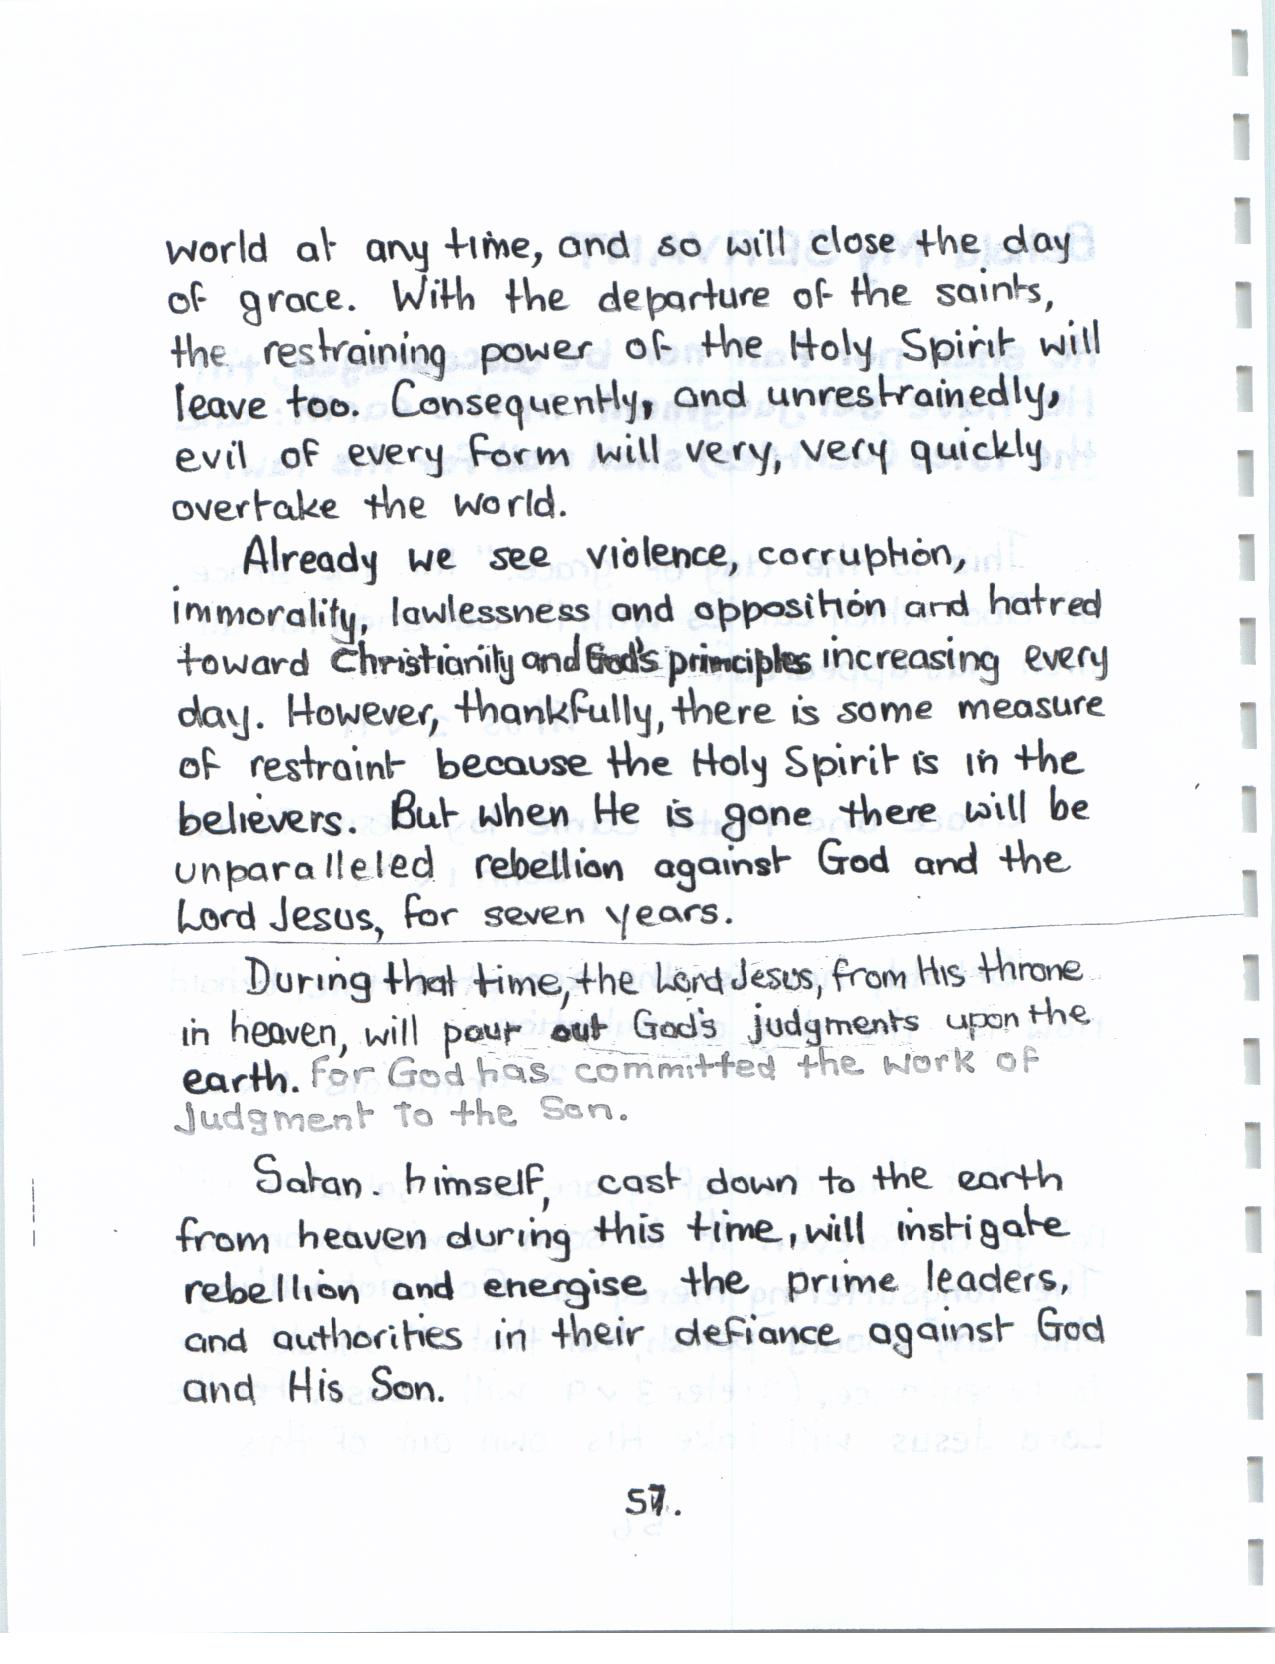 world at any time, and so will close the day
of grace. With the departure of the saints,
the restraining power of the Holy Spirit will
leave too. Consequently, and unrestrainedly,
evil of every form will very, very quickly
overtake the world.
Already we see violence, corruption,
immorality, lawlessness and opposition and hatred
toward Christianity and God's principles increasing every
day. However, thankfully, there is some measure
of restraint because the Holy Spirit is in the
believers. But when He is gone there will be
unparalleled rebellion against God and the
Lord Jesus, for seven years.
During that time, the Lord Jesus, from His throne
in heaven, will pour out God's judgments upon the
earth. For God has committed the work of
Judgment to the Son.
Satan. himself, cast down to the earth
from heaven during this time, will instigate
rebellion and energise the prime leaders,
and authorities in their defiance against God
and His Son.
57.